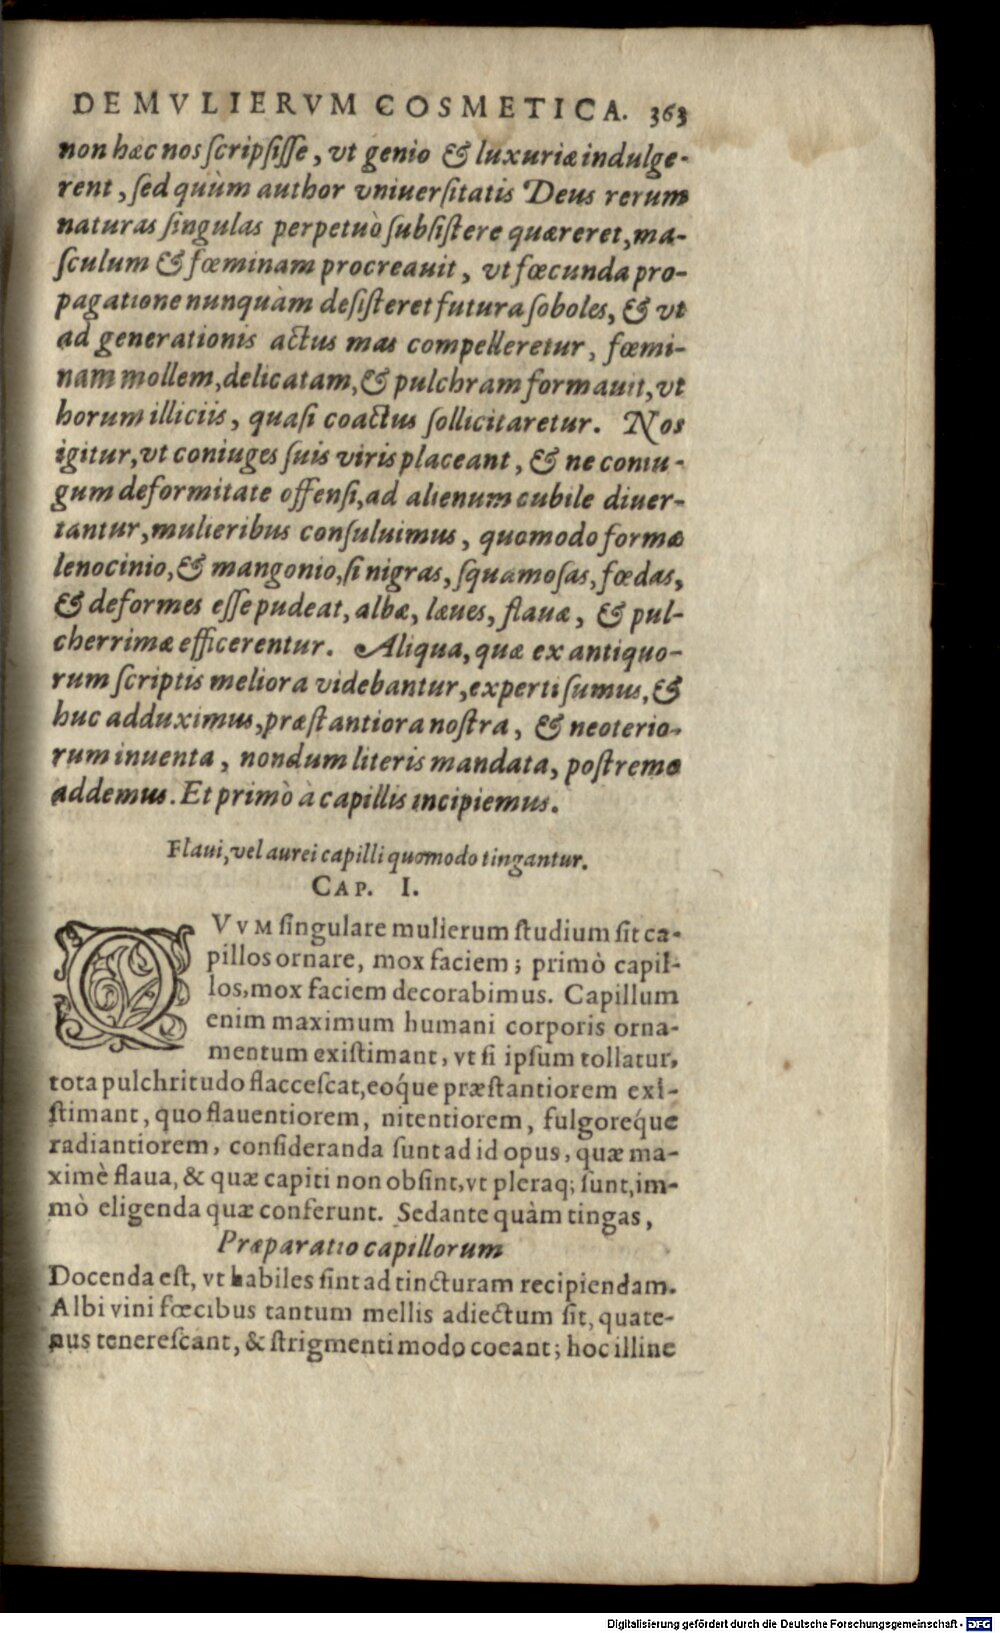 DE MVLIERVM COSMETICA. 363
non hæc nos scripsisse, vt genio & luxuriæ indulge-
rent, sed quùm author vniuersitatis Deus rerum
naturas singulas perpetuò subsistere quæreret, ma-
sculum & fœminam procreauit, vt fœcunda pro-
pagatione nunquàm desisteret futura soboles, & vt
ad generationis actus mas compelleretur, fœmi-
nam mollem, delicatam, & pulchram formauit, vt
horum illiciis, quasi coactus sollicitaretur. Nos
igitur, vt coniuges suis viris placeant, & ne coniu-
gum deformitate offensi, ad alienum cubile diuer-
tantur, mulieribus consuluimus, quomodo formæ
lenocinio, & mangonio, si nigras, squamosas, fœdas,
& deformes esse pudeat, albæ, læues, flauæ, & pul-
cherrimæ efficerentur. Aliqua, quæ ex antiquo-
rum scriptis meliora videbantur, experti sumus, &
huc adduximus, præstantiora nostra, & neoterio-
rum inuenta, nondum literis mandata, postremo
addemus. Et primò à capillis incipiemus.
Flaui, vel aurei capilli quomodo tingantur.
CAP. I.
QVVM singulare mulierum studium sit ca-
pillos ornare, mox faciem; primò capil-
los, mox faciem decorabimus. Capillum
enim maximum humani corporis orna-
mentum existimant, vt si ipsum tollatur,
tota pulchritudo flaccescat, eoq́ue præstantiorem exi-
stimant, quo flauentiorem, nitentiorem, fulgoreq́ue
radiantiorem, consideranda sunt ad id opus, quæ ma-
ximè flaua, & quæ capiti non obsint, vt pleraq; sunt, im-
mò eligenda quæ conferunt. Sed ante quàm tingas,
Præparatio capillorum
Docenda est, vt habiles sint ad tincturam recipiendam.
Albi vini fœcibus tantum mellis adiectum sit, quate-
nus tenerescant, & strigmenti modo coeant; hoc illine
Digitalisierung gefördert durch die Deutsche Forschungsgemeinschaft - DFG